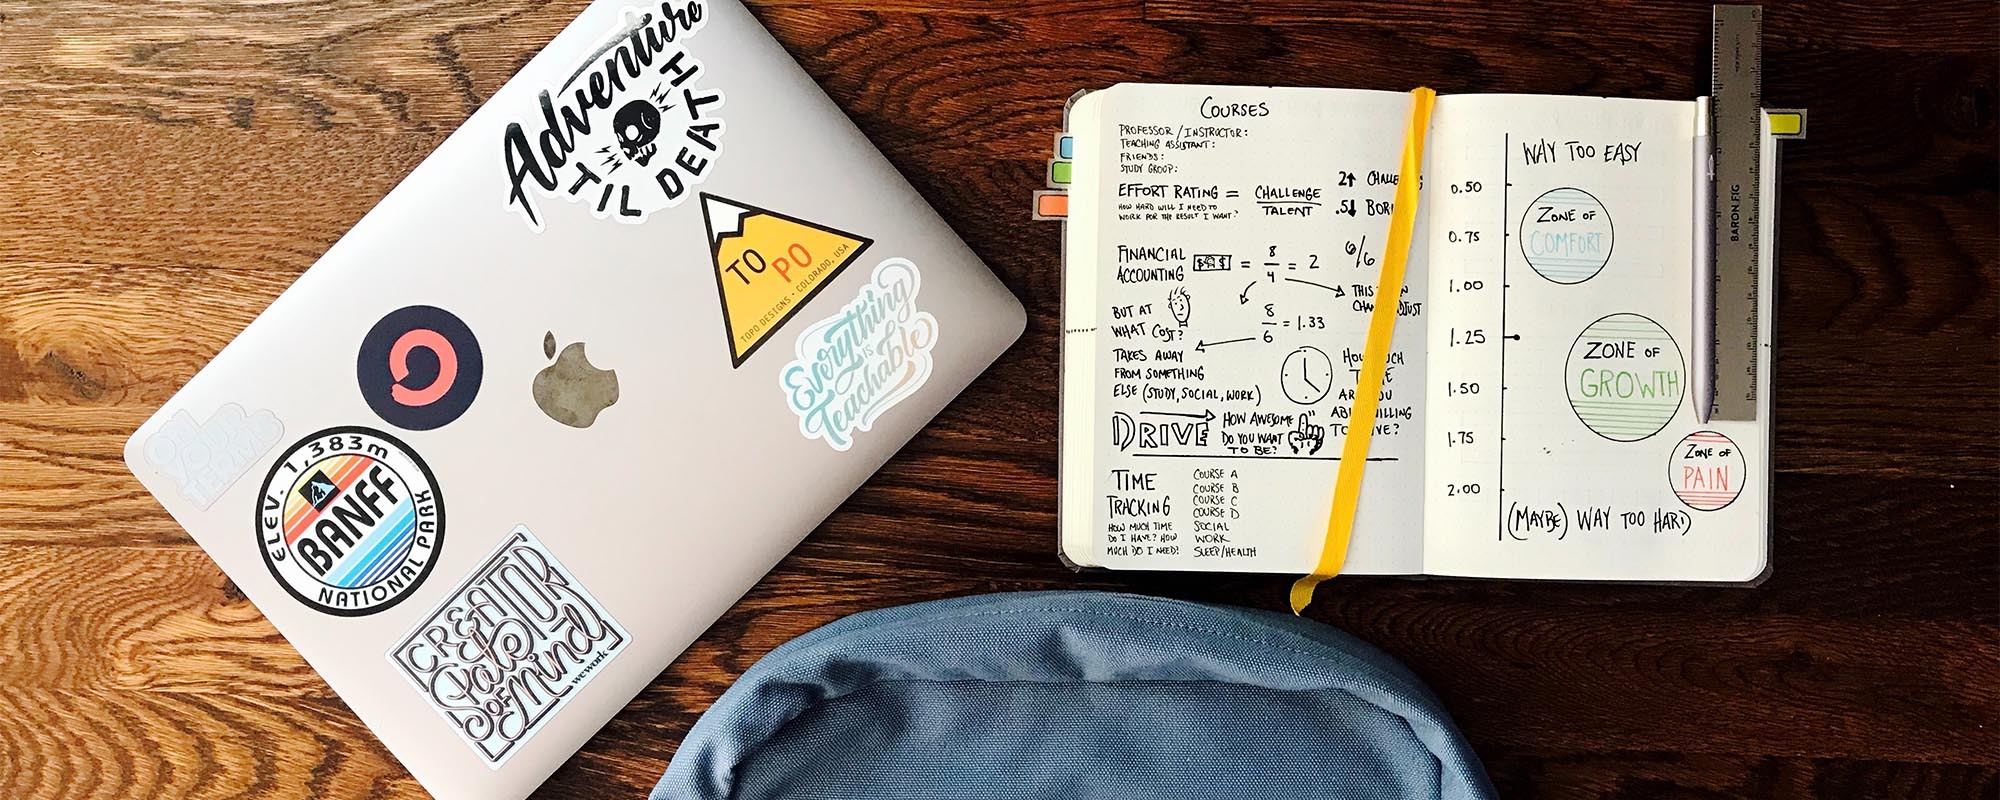 Adventure
TIL DEATH
TO PO
TOPO DESIGNS - COLORADO, USA
Everything
is
Teachable
ON
YOUR
TERMS
ELEV. 1,383m
BANFF
NATIONAL PARK
CREATOR
State
OF
Mind
wework
COURSES
PROFESSOR / INSTRUCTOR:
TEACHING ASSISTANT:
FRIENDS:
STUDY GROUP:
EFFORT RATING = CHALLENGE
TALENT
HOW HARD WILL I NEED TO
WORK FOR THE RESULT I WANT?
2↑
.5↓
FINANCIAL
ACCOUNTING $ $ = 8/4 = 2 6/6
BUT AT
WHAT COST?
8/6 = 1.33
THIS
TAKES AWAY
FROM SOMETHING
ELSE (STUDY, SOCIAL, WORK)
DRIVE
HOW AWESOME
DO YOU WANT
TO BE?
TIME
TRACKING
HOW MUCH TIME
DO I HAVE? HOW
MUCH DO I NEED?
COURSE A
COURSE B
COURSE C
COURSE D
SOCIAL
WORK
SLEEP/HEALTH
WAY TOO EASY
0.50
0.75
1.00
1.25
1.50
1.75
2.00
ZONE OF
COMFORT
ZONE OF
GROWTH
ZONE OF
PAIN
(MAYBE) WAY TOO HARD
BARON FIG